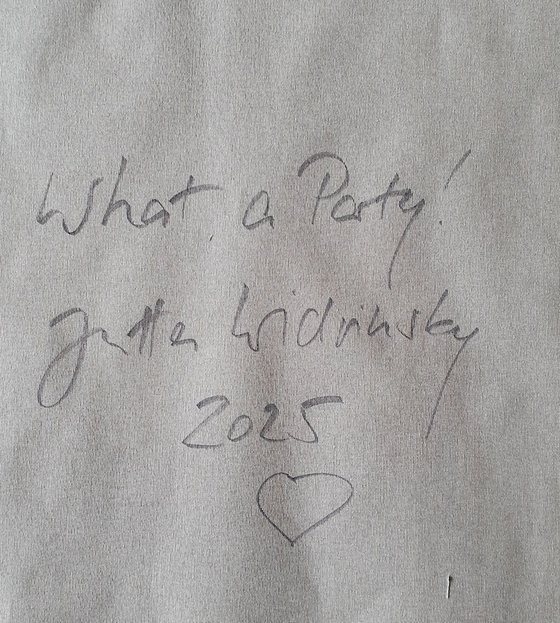 What a Party!
Jutta Widrinsky
2025